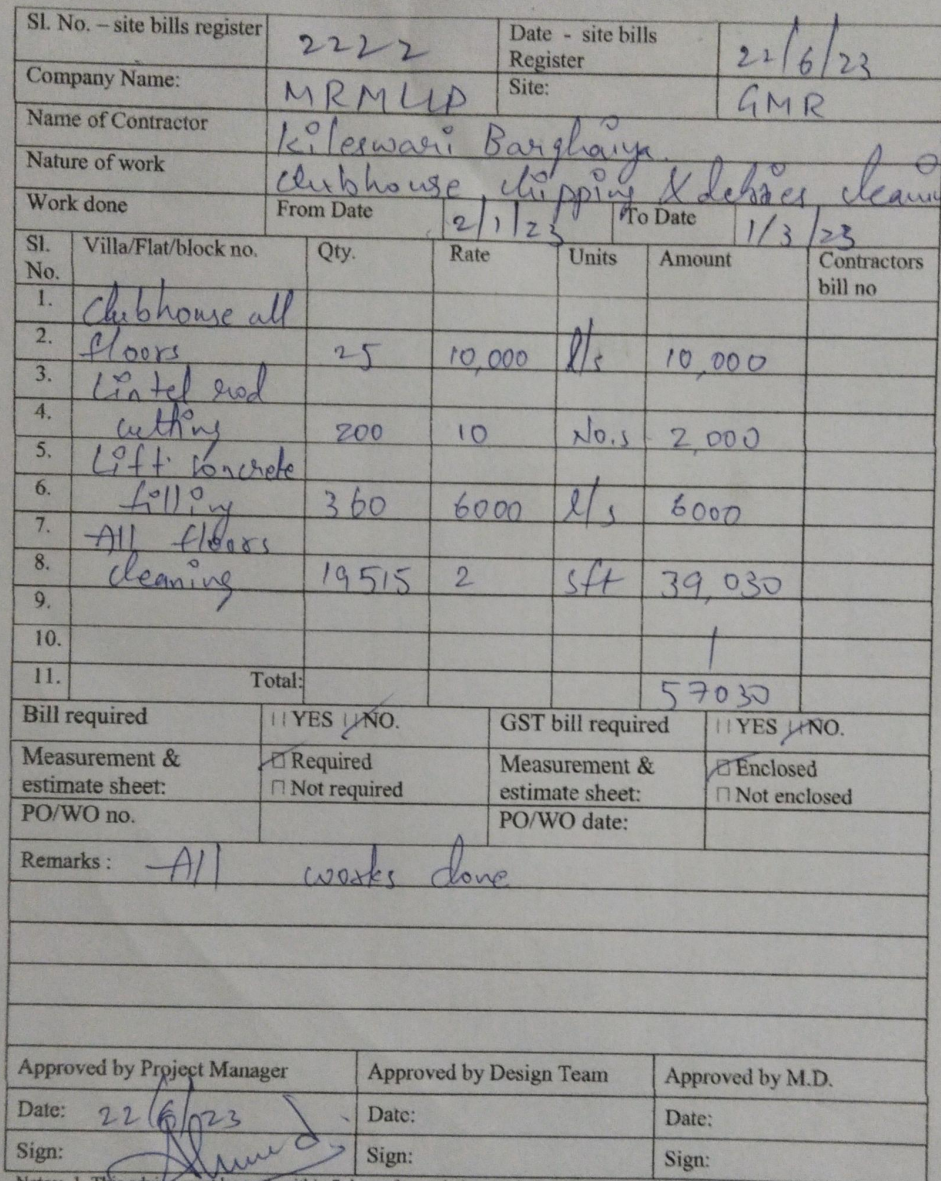 Sl. No. – site bills register 2222 Date - site bills Register 22/6/23
Company Name: MRMLLP Site: GMR
Name of Contractor Kileswari Barghaiya
Nature of work Clubhouse chipping & debries cleaning
Work done From Date 2/1/23 To Date 1/3/23
Sl. No. Villa/Flat/block no. Qty. Rate Units Amount Contractors bill no
1. Clubhouse all
2. floors 25 10,000 l/s 10,000
3. Lintel rod
4. cutting 200 10 No.s 2,000
5. Lift concrete
6. filling 360 6000 l/s 6000
7. All floors
8. cleaning 19515 2 sft 39,030
9.
10.
11. Total: 57030
Bill required YES NO. GST bill required YES NO.
Measurement & estimate sheet: Required Not required Measurement & estimate sheet: Enclosed Not enclosed
PO/WO no. PO/WO date:
Remarks : All works done
Approved by Project Manager Approved by Design Team Approved by M.D.
Date: 22/6/23 Date: Date:
Sign: Sign: Sign: